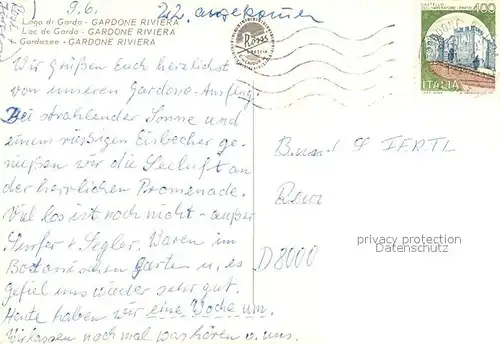 9.6.
22. angekommen
Lago di Garda - GARDONE RIVIERA
Lac de Garda - GARDONE RIVIERA
Gardasee - GARDONE RIVIERA
Wir grüßen Euch herzlichst
von unserem Gardone-Ausflug.
Bei strahlender Sonne und
einem riesigen Eisbecher ge-
nießen wir die Seeluft an
der herrlichen Promenade.
Viel los ist noch nicht - außer
Surfer + Segler. Waren im
Botanischen Garten u. es
gefiel uns wieder sehr gut.
Heute haben wir eine Woche um.
Wir lassen noch mal was hören v. uns.
CASTELLO
400
ITALIA
D 8000
privacy protection
Datenschutz